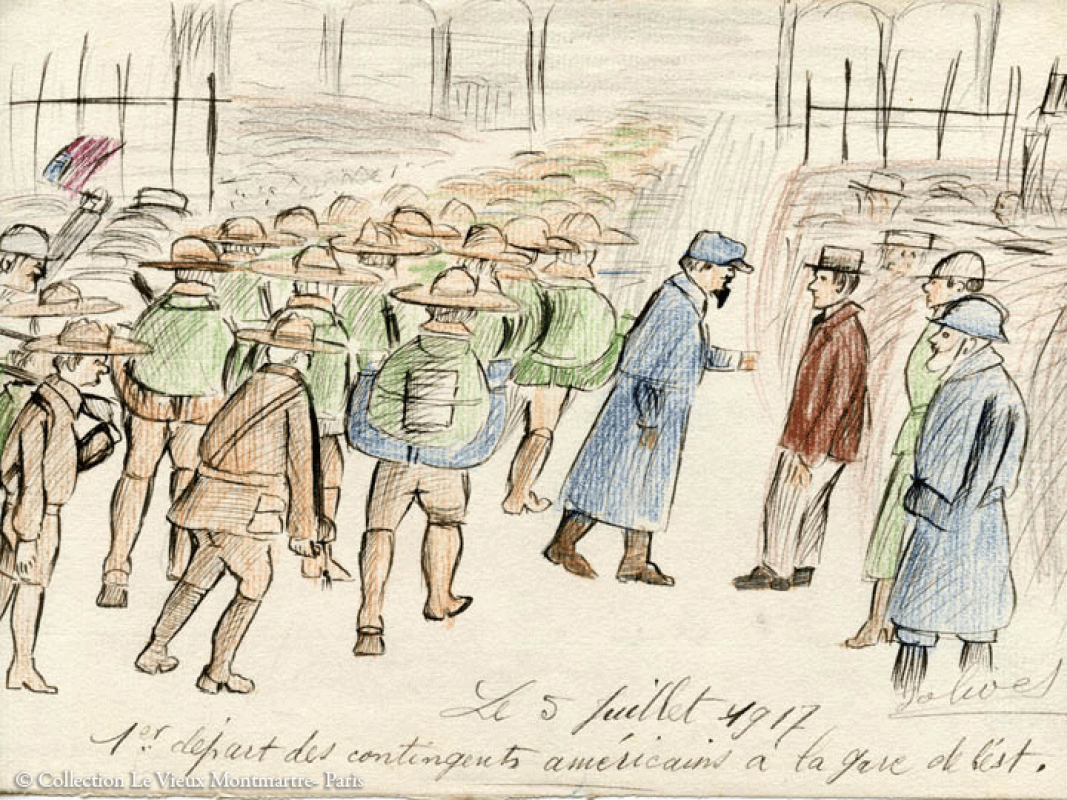 Le 5 juillet 1917
1er départ des contingents américains à la gare de l'est.
© Collection Le Vieux Montmartre- Paris